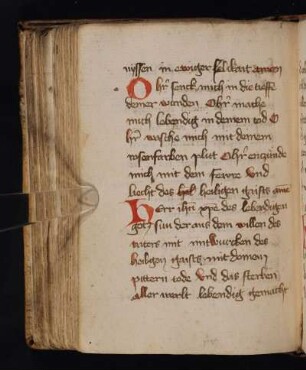 wissen in ewiger selikait amen
O hr senck mich in die tieffe
deiner wunden O hr mache
mich lebendig in deinem tod O
hr wasche mich mit deinem
rosenfarben plut O hr enzünde
mich mit dem fewre vnd
liecht des hal heiligen gaists ame
Herr ihu xpe des lebendigen
gotz sun der aus dem willen des
vaters mit mitwurcken des
heiligen gaists mit deinem
pittern tode vnd das sterben
aller werlt lebendig gemacht